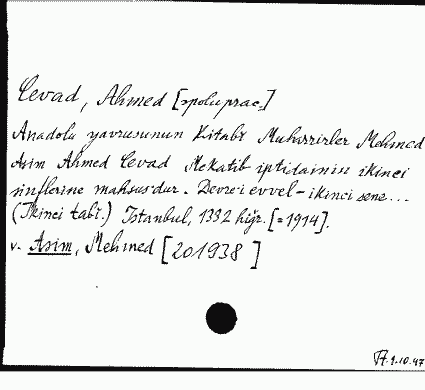 Cevad, Ahmed [spoluprac.]
Anadolu yavrusunun Kitabı Muharrirler Mehmed
Asım Ahmed Cevad Mekatib iptidainin ikinci
sınflerine mahsusdur. Devrei evvel - ikinci sene...
(Ikinci tabı.) Istanbul, 1332 hiğr. [=1914].
v. Asim, Mehmed [201938]
9.10.47